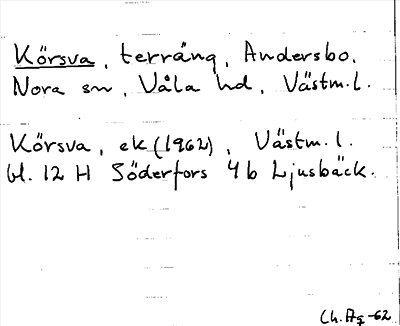 Körsva, terräng, Andersbo.
Nora sn, Våla hd, Västm.l.
Körsva, ek (1962), Västm.l.
bl. 12 H Söderfors 4 b Ljusbäck.
Ch. Ag -62